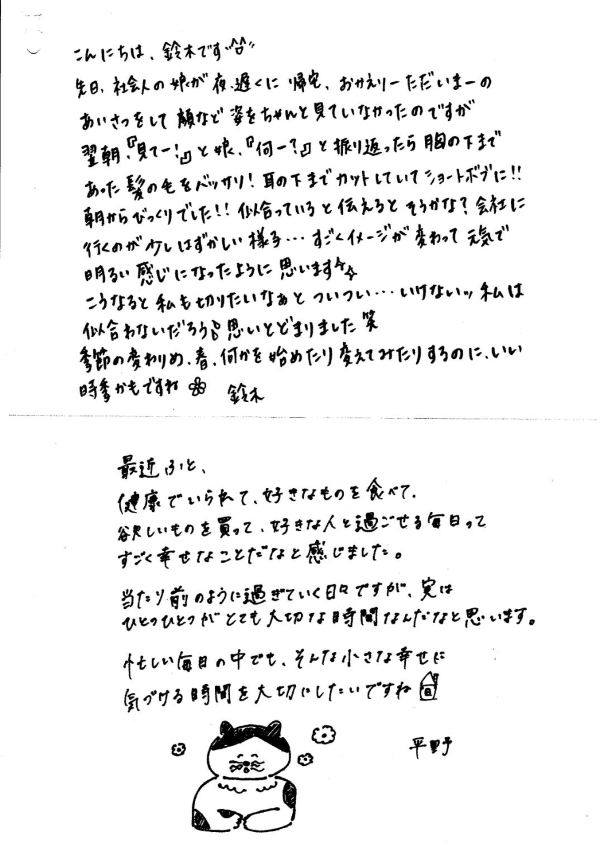 こんにちは、鈴木です^^
先日、社会人の娘が夜、遅くに帰宅、おかえりーただいまーの
あいさつをして顔など姿をちゃんと見ていなかったのですが
翌朝、『見てー!』と娘、『何ー?』と振り返ったら胸の下まで
あった髪の毛をバッサリ!耳の下までカットしていてショートボブに!!
朝からびっくりでした!!似合っていると伝えるとそうかな?会社に
行くのが少しはずかしい様子…すごくイメージが変わって元気で
明るい感じになったように思います
こうなると私も切りたいなぁとついつい…いけないッ私は
似合わないだろうと思いとどまりました笑
季節の変わりめ、春、何かを始めたり変えてみたりするのに、いい
時季かもですね 鈴木
最近ふと、
健康でいられて、好きなものを食べて、
欲しいものを買って、好きな人と過ごせる毎日って
すごく幸せなことだなと感じました。
当たり前のように過ぎていく日々ですが、実は
ひとつひとつがとても大切な時間なんだなと思います。
忙しい毎日の中でも、そんな小さな幸せに
気づける時間を大切にしたいですね
平野